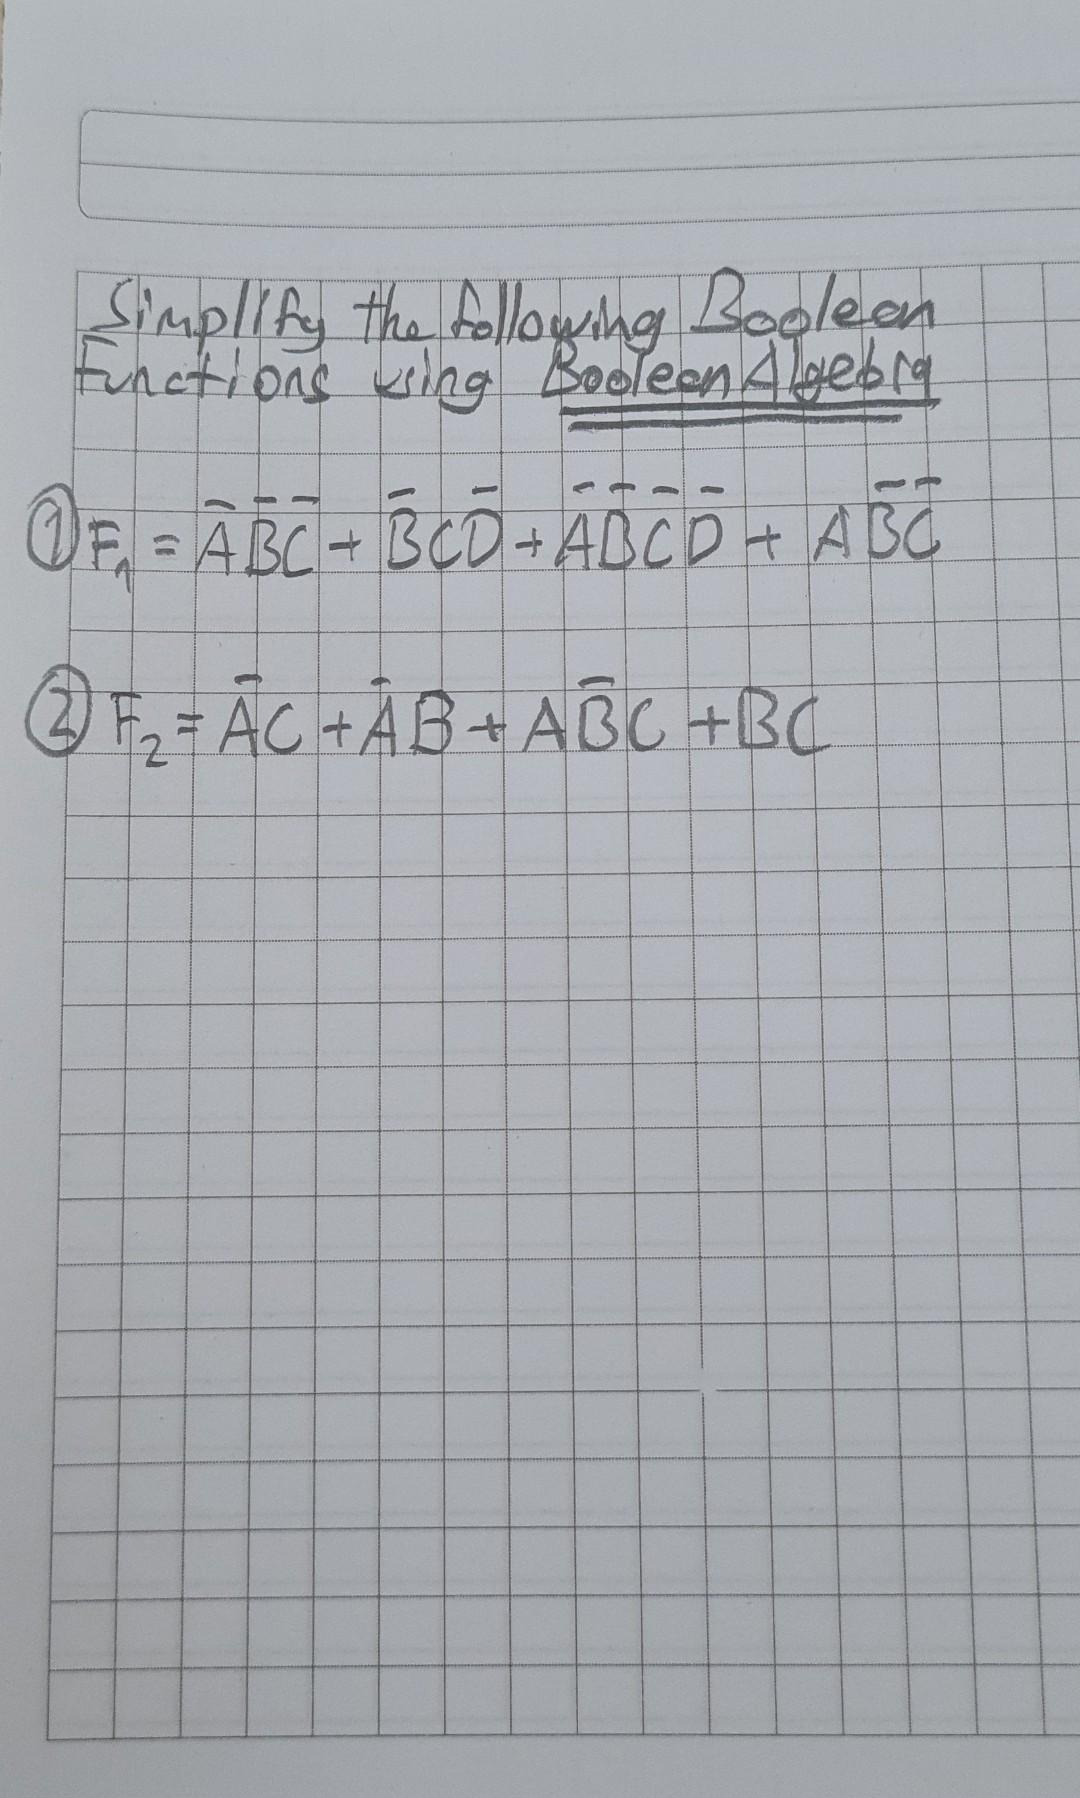 Simplify the following Boolean
Functions using Boolean Algebra
① F₁ = A̅B̅C̅ + B̅CD̅ + A̅B̅C̅D̅ + AB̅C̅
② F₂ = A̅C + A̅B + AB̅C + BC